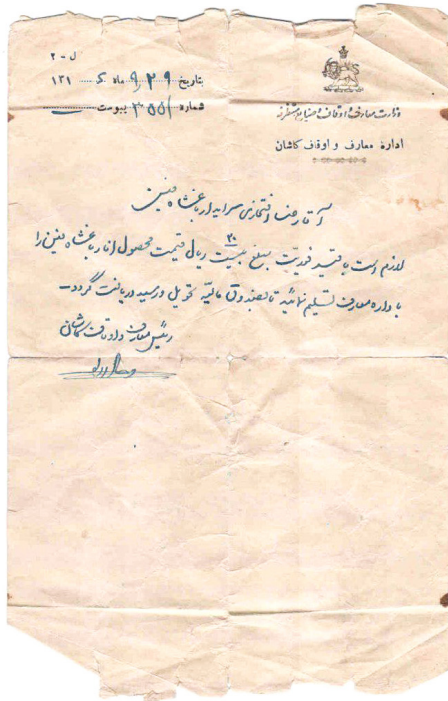 ل - ۲
بتاریخ ۲۹ ماه ۹ ۱۳۱
شماره ۳۵۵۱ پیوست
وزارت معارف و اوقاف و صنایع مستظرفه
اداره معارف و اوقاف کاشان
آقا رضا افتخاری سرایدار باغشاه فین
لازم است با قید فوریت مبلغ بیست ریال قیمت محصول انار باغشاه فین را
۲۰
باداره معارف تسلیم نمائید تا بصندوق مالیه تحویل و رسید دریافت گردد –
رئیس معارف و اوقاف کاشان